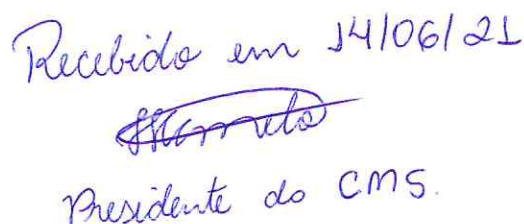 Recebido em 14/06/21
Presidente do CMS.